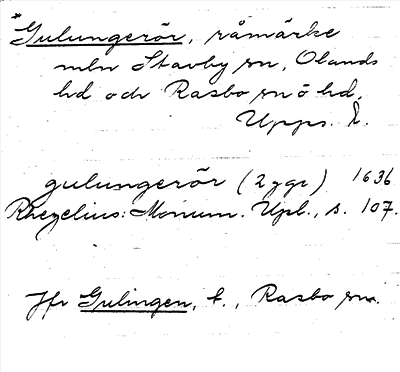 *Gulungerör, råmärke
mln Stavby sn, Olands
hd och Rasbo sn o hd,
Upps. l.
gulungerör (2 ggr) 1636
Rhezelius: Monum. Upl., s. 107.
Jfr Gulingen, t., Rasbo sn.